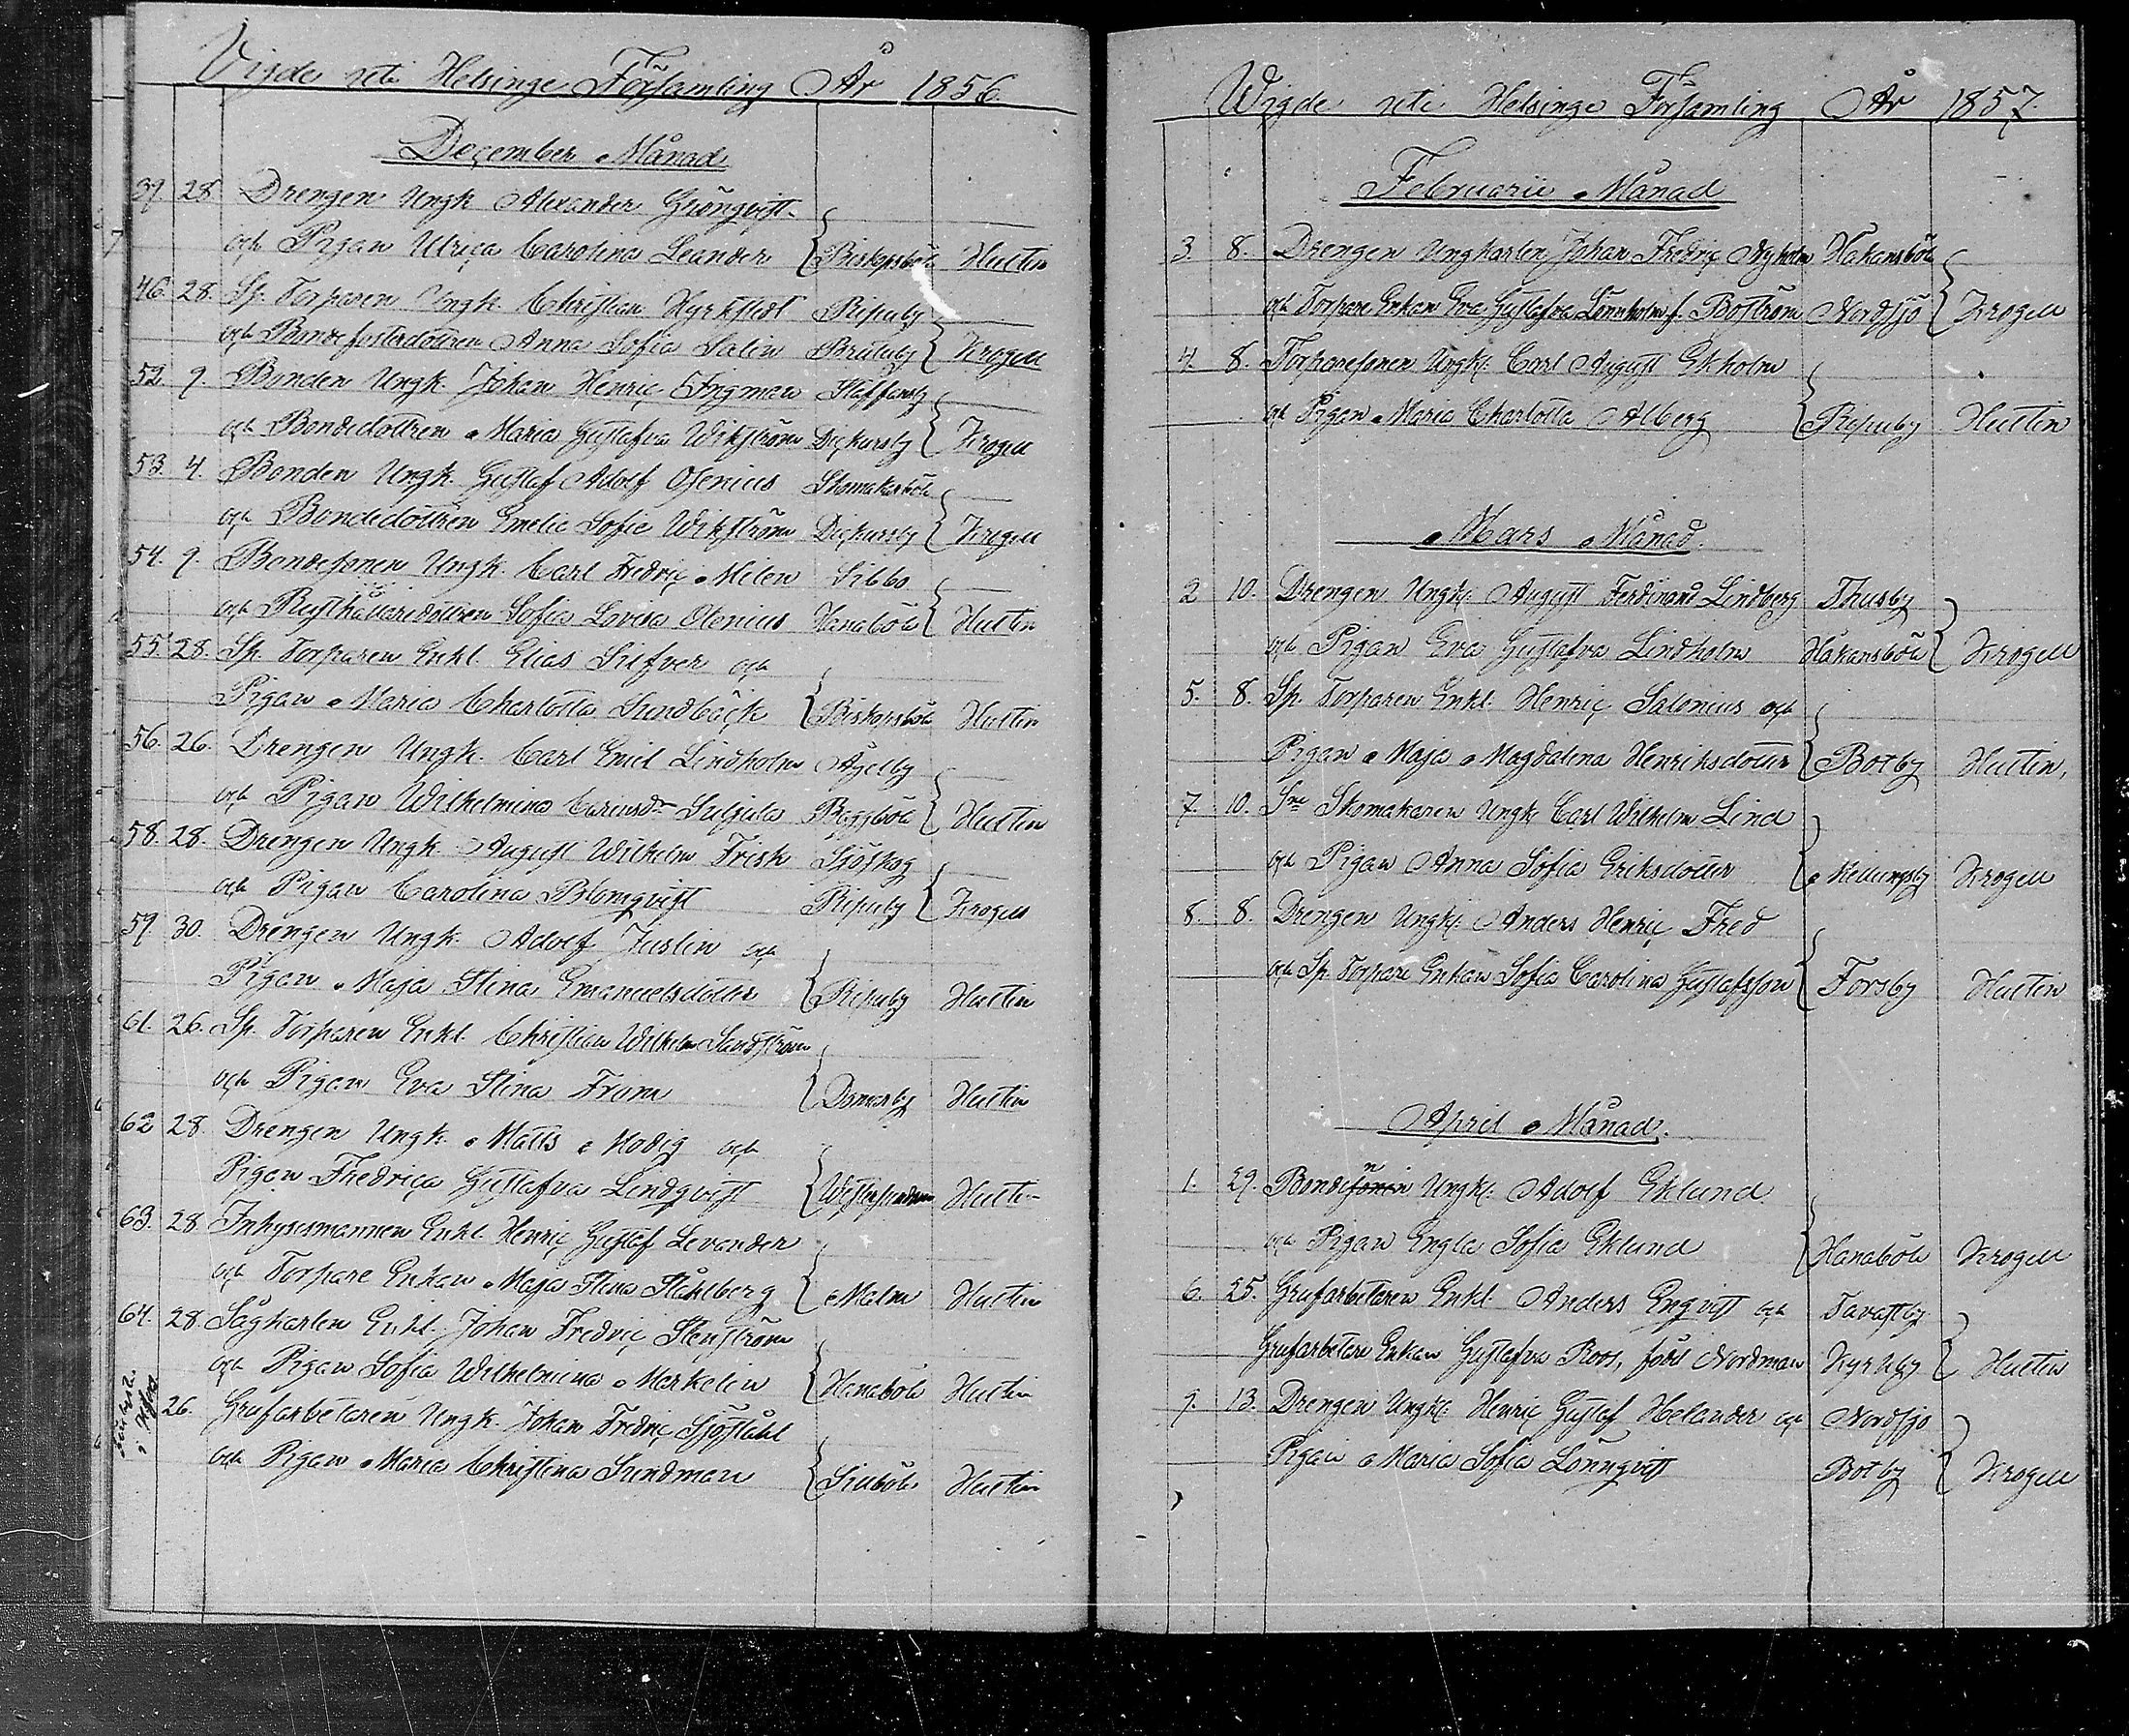 Vigde uti Helsinge Församling År 1856.
December Månad
39. 28. Drengen Ungk. Alexander Grönqvist
och Pigan Ulrica Carolina Leander Biskopsböle Hultin
46. 28. Sp. Torparen Ungk. Christian Kyrkstedt Ripuby
och Bondefosterdottren Anna Sofia Salin Brutuby Krogell
52 9. Bonden Ungk. Johan Henric Ingman Staffansby
och Bondedottren Maria Gustafva Wikström Dickursby Krogell
53. 4. Bonden Ungk. Gustaf Adolf Osenius Skomakarböle
och Bondedottren Emelie Sofie Wikström Dickursby Krogell
54. 9. Bondesonen Ungk. Carl Fredric Milen Sibbo
och Rusthållaredottren Sofia Lovisa Olenius Hanaböle Hultin
55. 28. Sp. Torparen Enkl. Elias Silfver och
Pigan Maria Charlotta Sundbäck Biskopsböle Hultin
56. 26. Drengen Ungk. Carl Emil Lindholm
och Pigan Wilhelmina Böle Hultin
58. 28. Drengen Ungk. August Wilhelm Frisk Sjöskog
och Pigan Carolina Blomqvist Ripuby Krogell
59 30. Drengen Ungk. Adolf Juslin och
Pigan Maja Stina Emanuelsdotter Ripuby Hultin
61. 26. Sp. Torparen Enkl. Christian Wilhelm Sandström
och Pigan Eva Stina From Domarby Hultin
62 28. Drengen Ungk. Matts Modig och
Pigan Fredrica Gustafva Lindqvist Westersundom Hultin
63. 28 Inhysesmannen Enkl. Henric Gustaf Levander
och Torpare Enkan Maja Stina Ståhlberg Malm Hultin
64. 28. Sågkarlen Enkl. Johan Fredric Stenström
och Pigan Sofia Wilhelmina Markelin Hanaböle Hultin
26. Grufarbetaren Ungk. Johan Fredric Sjöståhl
och Pigan Maria Christina Sundman Siuböle Hultin
Wigde uti Helsinge Församling År 1857.
Februarii Månad
3. 8. Drengen Ungkarlen Johan Fredric Nyholm Håkansböle
och Torpare Enkan Eva Gustafva Lönnholm f. Boström Nordsjö Krogell
4. 8. Torparesonen Ungk. Carl August Ekholm
och Pigan Maria Charlotta Alberg Ripuby Hultin
Mars Månad.
2 10. Drengen Ungk. August Ferdinand Lindberg Thusby
och Pigan Eva Gustafva Lindholm Håkansböle Krogell
5. 8. Sp. Torparen Enkl. Henric Salonius och
Pigan Maja Magdalena Henriksdotter Botby Hultin,
7. 10. Skomakaren Ungk. Carl Wilhelm Lind
och Pigan Anna Sofia Eriksdotter Mellungsby Krogell
8. 8. Drengen Ungk. Anders Henric Fred
och Sp. Torpare Enkan Sofia Carolina Gustafsson Forsby Hultin
April Månad.
1. 29. Bonden Ungk. Adolf Eklund
och Pigan Engla Sofia Eklund Hanaböle Krogell
6. 25. Grufarbetaren Enkl. Anders Engvist och Tavastby
Grufarbetare Enkan Gustafva Roos, född Nordman Kyrkby Hultin
9. 13. Drengen Ungk. Henric Gustaf Helander och Nordsjö
Pigan Maria Sofia Lönnqvist Botby Krogell